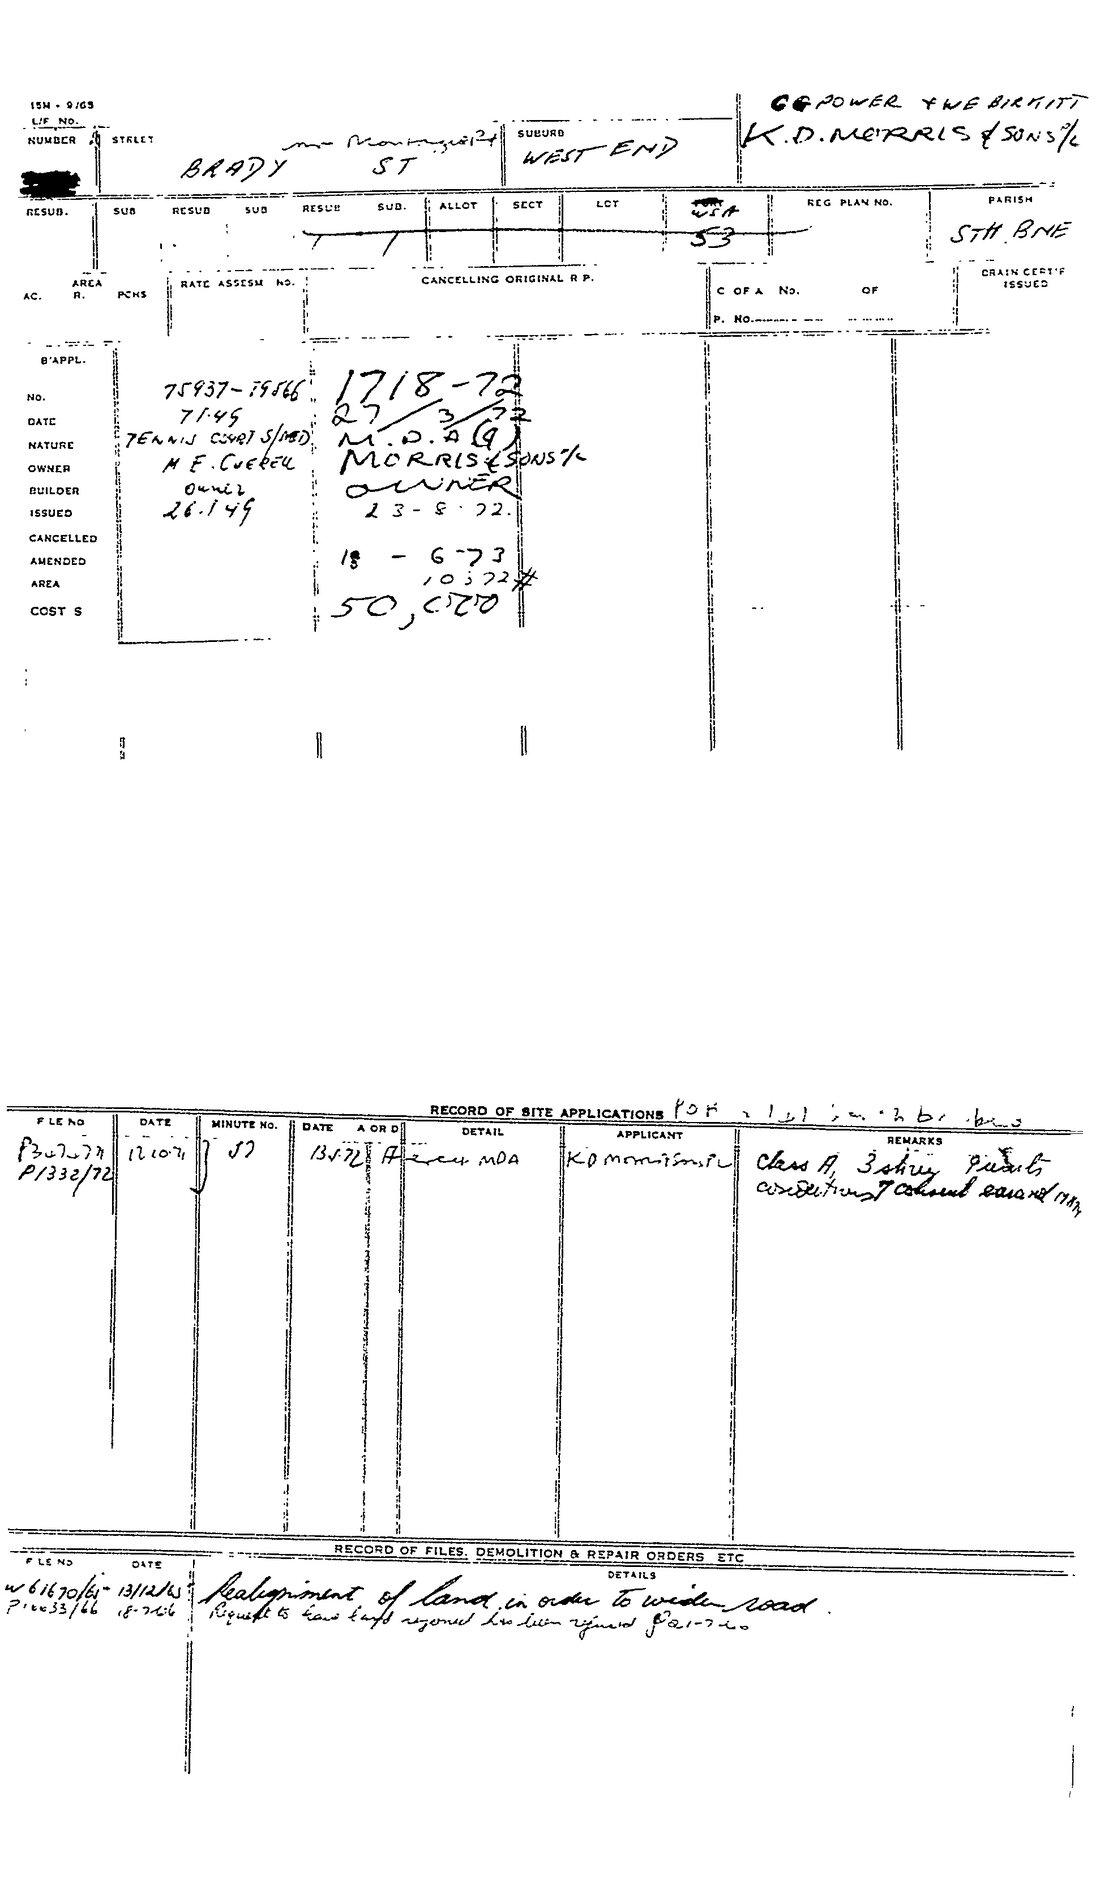 15M - 9/65
GG POWER & WE BIRKITT
L/F NO.
NUMBER STREET SUBURB K.D. MORRIS & SONS P/L
BRADY ST WEST END
RESUB. SUB RESUB SUB RESUB SUB. ALLOT SECT LOT WSA REG PLAN NO. PARISH
53 STH. BNE
AREA RATE ASSESM NO. CANCELLING ORIGINAL R P. DRAIN CERT'F
AC. R. PCHS C OF A No. OF ISSUED
P. NO.
B'APPL.
No. 75937-19566 1718-72
DATE 7.1.49 27/3/72
NATURE TENNIS COURT S/MED M.D.A (9)
OWNER MORRIS & SONS P/L
BUILDER Owner OWNER
ISSUED 26.1.49 23-8-72.
CANCELLED
AMENDED 18-6-73
AREA 10372#
COST $ 50,000
RECORD OF SITE APPLICATIONS
FILE NO DATE MINUTE NO. DATE A OR D DETAIL APPLICANT REMARKS
12.10.71 57 A erect MDA KD Morris & Sons P/L Class A, 3 storey 9 units
P1332/72 conditions consent
RECORD OF FILES, DEMOLITION & REPAIR ORDERS ETC
FILE NO DATE DETAILS
W61670/65 13/12/65 Realignment of land in order to widen road.
18-7-66 Request to have land has been refused